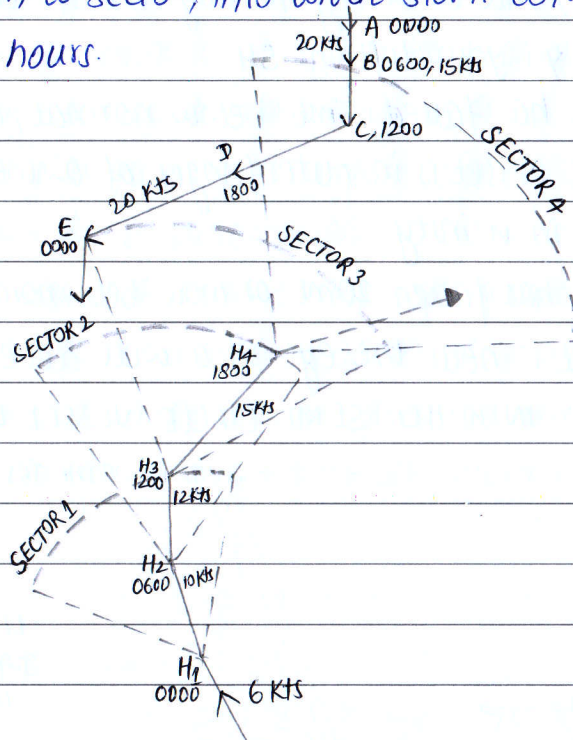 hours.
A 0000
20 Kts
B 0600, 15Kts
C, 1200
D
1800
20 KTS
E
0000
SECTOR 4
SECTOR 3
SECTOR 2
H4
1800
15Kts
H3
1200
12Kts
SECTOR 1
H2
0600
10Kts
H1
0000
6 Kts